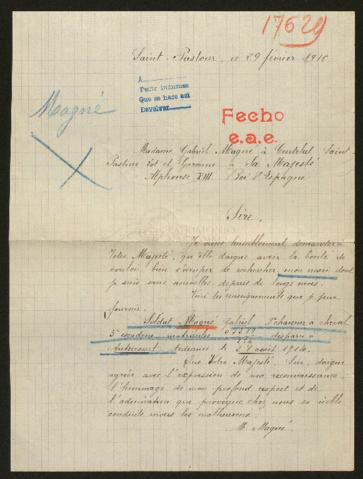 17629
Saint-Pastour, le 29 février 1916
A
Pedir informes
Que se hace así
Devolver
Magné
Fecho
e.a.e.
Madame Gabriel Magné à Saint-
Pastour Lot et Garonne à Sa Majesté
Alphonse XIII Roi d'Espagne
Sire,
Je viens humblement demander à
Votre Majesté, qu'elle daigne avoir la bonté de
vouloir bien s'occuper de rechercher mon mari dont
je suis sans nouvelles depuis de longs mois.
Voici les renseignements que je peux
fournir
Soldat Magné Gabriel chasseur à cheval
5e escadron matricule disparu à
Ardennes le août 1914.
Que Votre Majesté, Sire, daigne
agréer avec l'expression de ma reconnaissance
l'hommage de mon profond respect et de
l'admiration que provoque chez nous sa noble
conduite envers les malheureux.
M. Magné